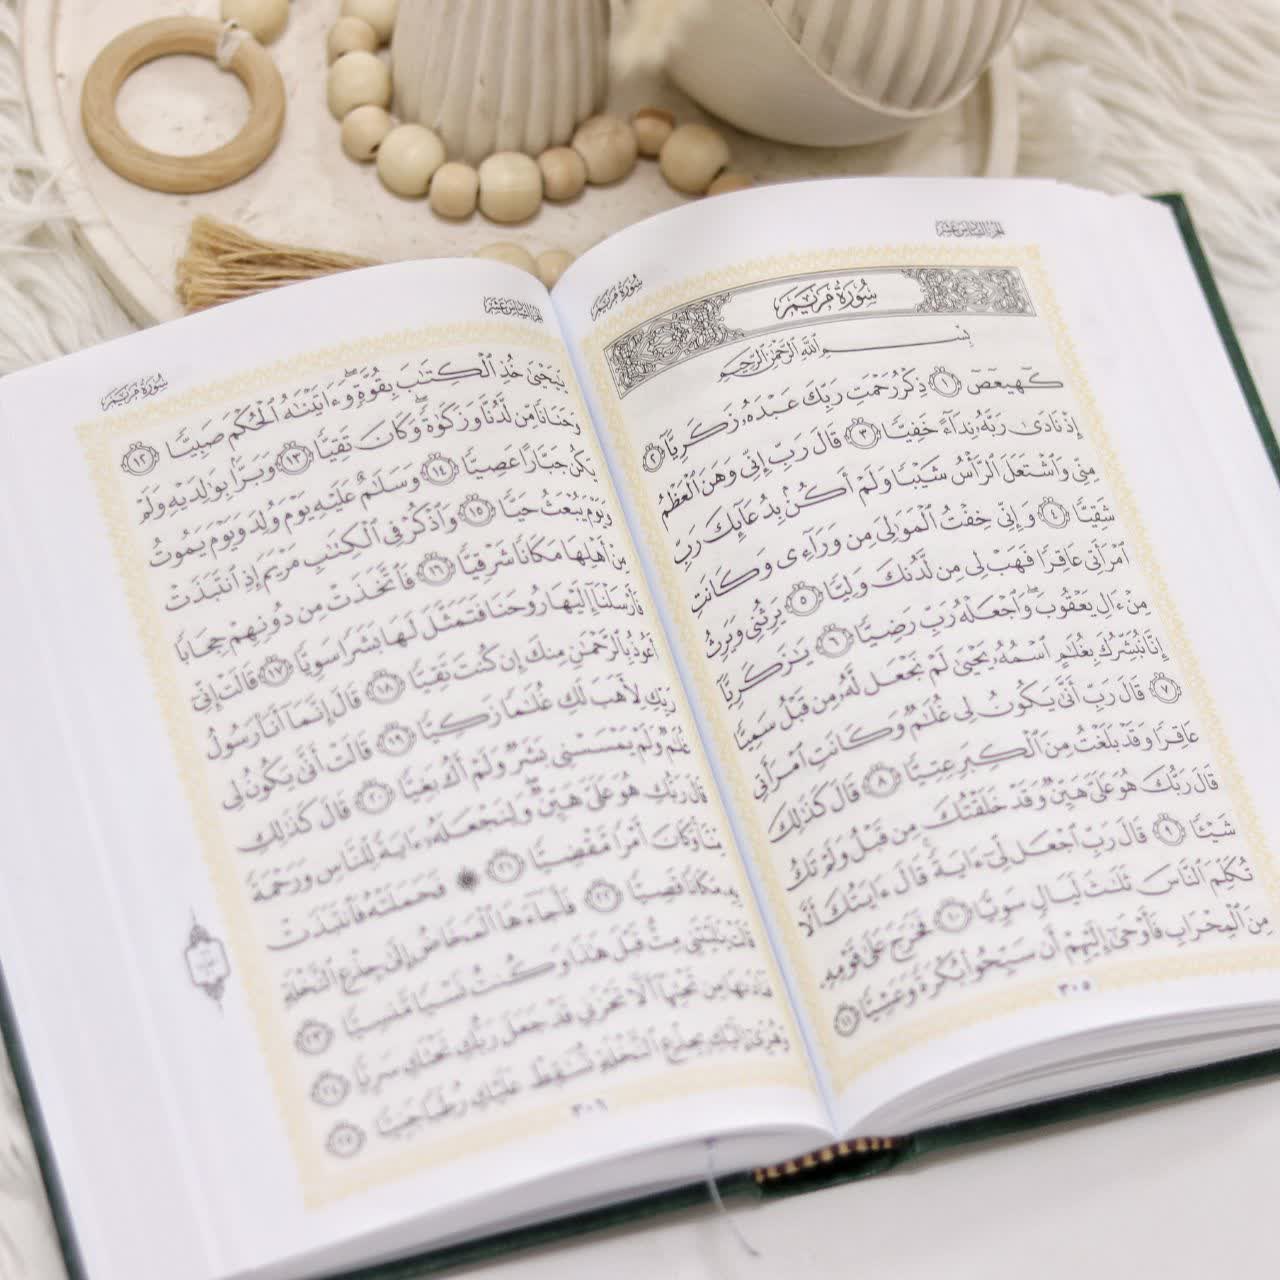 سُورَةُ مَرْيَمَ
الجُزْءُ السَّادِسَ عَشَرَ
سُورَةُ مَرْيَمَ
بِسْمِ ٱللَّهِ ٱلرَّحْمَٰنِ ٱلرَّحِيمِ
كٓهيعٓصٓ ١ ذِكْرُ رَحْمَتِ رَبِّكَ عَبْدَهُۥ زَكَرِيَّآ ٢
إِذْ نَادَىٰ رَبَّهُۥ نِدَآءً خَفِيًّا ٣ قَالَ رَبِّ إِنِّي وَهَنَ ٱلْعَظْمُ
مِنِّي وَٱشْتَعَلَ ٱلرَّأْسُ شَيْبًا وَلَمْ أَكُنۢ بِدُعَآئِكَ رَبِّ
شَقِيًّا ٤ وَإِنِّي خِفْتُ ٱلْمَوَٰلِيَ مِن وَرَآءِي وَكَانَتِ
ٱمْرَأَتِي عَاقِرًا فَهَبْ لِي مِن لَّدُنكَ وَلِيًّا ٥ يَرِثُنِي وَيَرِثُ
مِنْ ءَالِ يَعْقُوبَۖ وَٱجْعَلْهُ رَبِّ رَضِيًّا ٦ يَٰزَكَرِيَّآ
إِنَّا نُبَشِّرُكَ بِغُلَٰمٍ ٱسْمُهُۥ يَحْيَىٰ لَمْ نَجْعَل لَّهُۥ مِن قَبْلُ سَمِيًّا
٧ قَالَ رَبِّ أَنَّىٰ يَكُونُ لِي غُلَٰمٌ وَكَانَتِ ٱمْرَأَتِي
عَاقِرًا وَقَدْ بَلَغْتُ مِنَ ٱلْكِبَرِ عِتِيًّا ٨ قَالَ كَذَٰلِكَ
قَالَ رَبُّكَ هُوَ عَلَيَّ هَيِّنٌ وَقَدْ خَلَقْتُكَ مِن قَبْلُ وَلَمْ تَكُ
شَيْـًٔا ٩ قَالَ رَبِّ ٱجْعَل لِّيٓ ءَايَةًۚ قَالَ ءَايَتُكَ أَلَّا
تُكَلِّمَ ٱلنَّاسَ ثَلَٰثَ لَيَالٍ سَوِيًّا ١٠ فَخَرَجَ عَلَىٰ قَوْمِهِۦ
مِنَ ٱلْمِحْرَابِ فَأَوْحَىٰٓ إِلَيْهِمْ أَن سَبِّحُوا۟ بُكْرَةً وَعَشِيًّا ١١
٣٠٥
الجُزْءُ السَّادِسَ عَشَرَ
سُورَةُ مَرْيَمَ
يَٰيَحْيَىٰ خُذِ ٱلْكِتَٰبَ بِقُوَّةٍۖ وَءَاتَيْنَٰهُ ٱلْحُكْمَ صَبِيًّا ١٢
وَحَنَانًا مِّن لَّدُنَّا وَزَكَوٰةًۖ وَكَانَ تَقِيًّا ١٣ وَبَرًّۢا بِوَٰلِدَيْهِ وَلَمْ
يَكُن جَبَّارًا عَصِيًّا ١٤ وَسَلَٰمٌ عَلَيْهِ يَوْمَ وُلِدَ وَيَوْمَ يَمُوتُ
وَيَوْمَ يُبْعَثُ حَيًّا ١٥ وَٱذْكُرْ فِي ٱلْكِتَٰبِ مَرْيَمَ إِذِ ٱنتَبَذَتْ
مِنْ أَهْلِهَا مَكَانًا شَرْقِيًّا ١٦ فَٱتَّخَذَتْ مِن دُونِهِمْ حِجَابًا
فَأَرْسَلْنَآ إِلَيْهَا رُوحَنَا فَتَمَثَّلَ لَهَا بَشَرًا سَوِيًّا ١٧ قَالَتْ إِنِّيٓ
أَعُوذُ بِٱلرَّحْمَٰنِ مِنكَ إِن كُنتَ تَقِيًّا ١٨ قَالَ إِنَّمَآ أَنَا۠ رَسُولُ
رَبِّكِ لِأَهَبَ لَكِ غُلَٰمًا زَكِيًّا ١٩ قَالَتْ أَنَّىٰ يَكُونُ لِي
غُلَٰمٌ وَلَمْ يَمْسَسْنِي بَشَرٌ وَلَمْ أَكُ بَغِيًّا ٢٠ قَالَ كَذَٰلِكِ
قَالَ رَبُّكِ هُوَ عَلَيَّ هَيِّنٌۖ وَلِنَجْعَلَهُۥٓ ءَايَةً لِّلنَّاسِ وَرَحْمَةً
مِّنَّاۚ وَكَانَ أَمْرًا مَّقْضِيًّا ٢١ ۞ فَحَمَلَتْهُ فَٱنتَبَذَتْ
بِهِۦ مَكَانًا قَصِيًّا ٢٢ فَأَجَآءَهَا ٱلْمَخَاضُ إِلَىٰ جِذْعِ ٱلنَّخْلَةِ
قَالَتْ يَٰلَيْتَنِي مِتُّ قَبْلَ هَٰذَا وَكُنتُ نَسْيًا مَّنسِيًّا ٢٣
فَنَادَىٰهَا مِن تَحْتِهَآ أَلَّا تَحْزَنِي قَدْ جَعَلَ رَبُّكِ تَحْتَكِ سَرِيًّا ٢٤
وَهُزِّيٓ إِلَيْكِ بِجِذْعِ ٱلنَّخْلَةِ تُسَٰقِطْ عَلَيْكِ رُطَبًا جَنِيًّا ٢٥
٣٠٦